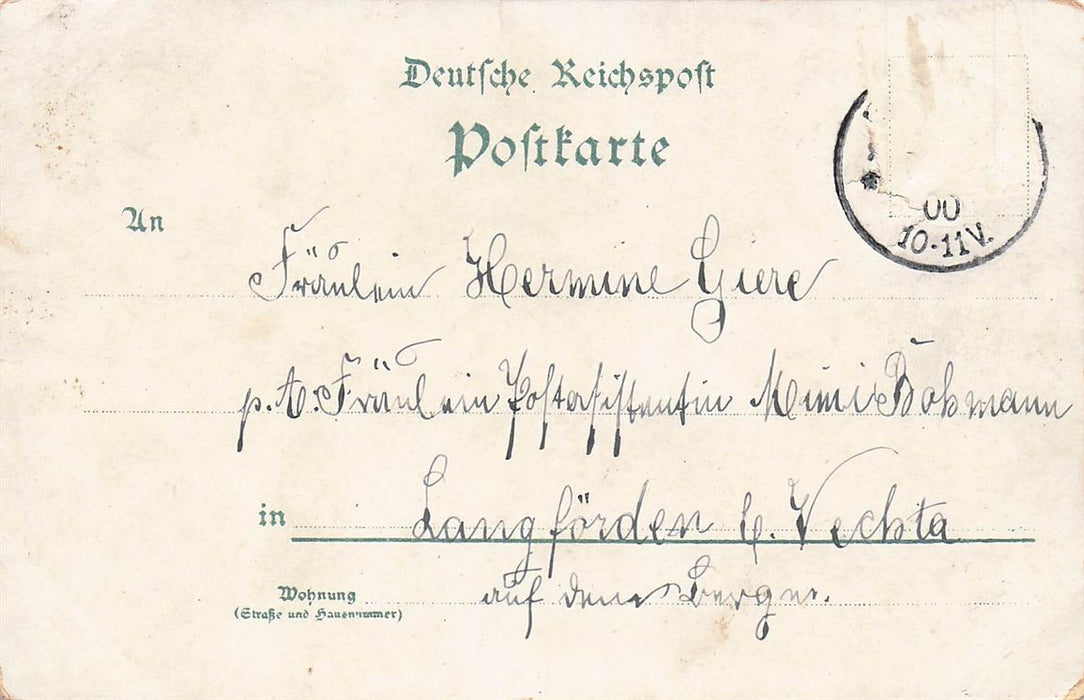 Deutsche Reichspost
Postkarte
00
10-11V.
An
Fräulein Hermine Giere
p. A. Fräulein Postassistentin Mimi Bohmann
in Langförden b. Vechta
Wohnung auf dem Berge.
(Straße und Hausnummer)